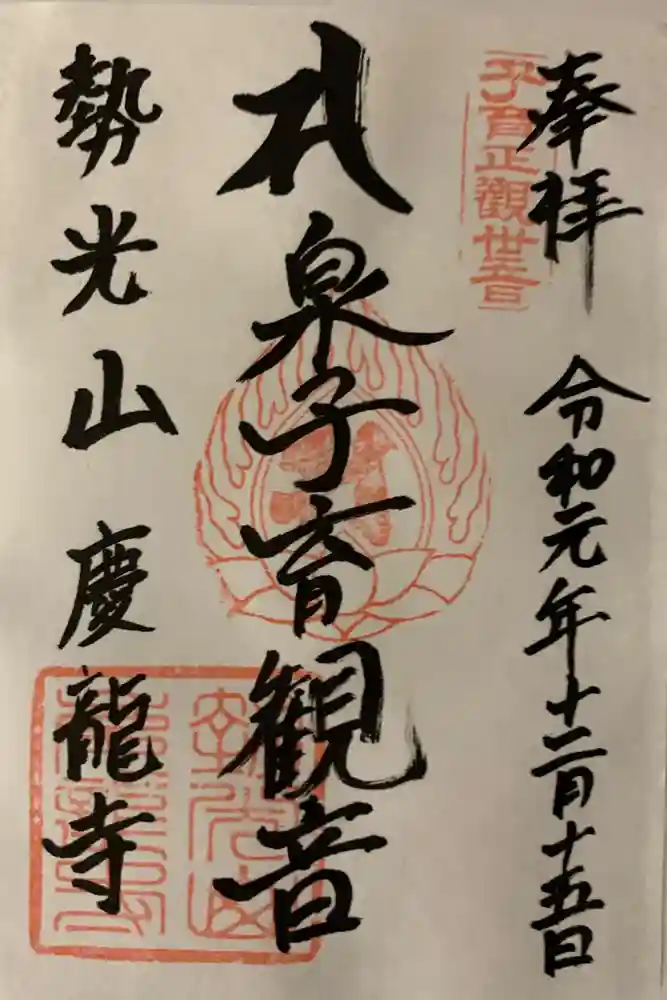 奉拝
令和元年十二月十五日
子育正觀世音
札泉子育観音
勢光山 慶龍寺